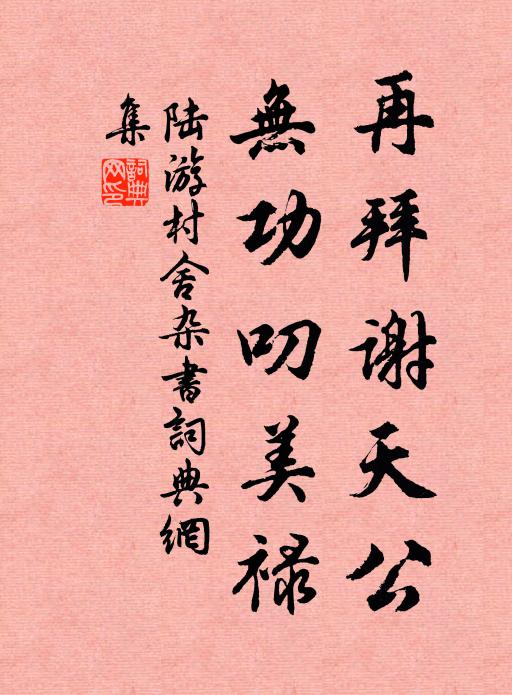 再拜谢天公
無功叨美禄
陆游村舍杂書詞典網
集
詞典網印